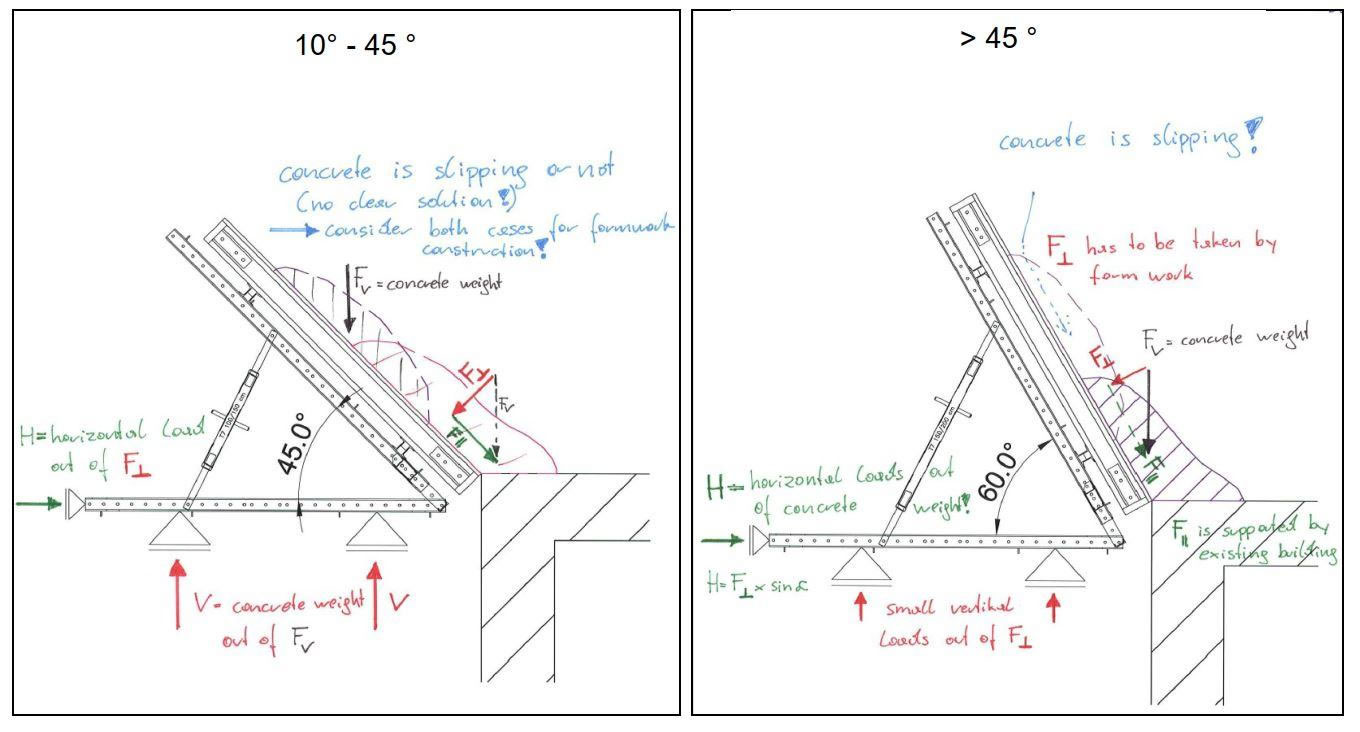 10° - 45 °
concrete is slipping or not
(no clear solution!)
→ consider both cases for formwork
construction!
Fv = concrete weight
F⊥
Fv
F||
45.0°
H = horizontal load
out of F⊥
V = concrete weight
out of Fv
V
> 45 °
concrete is slipping!
F⊥ has to be taken by
form work
Fv = concrete weight
F⊥
F||
60.0°
H = horizontal loads out
of concrete weight!
H = F⊥ x sin α
F|| is supported by
existing building
small vertikal
loads out of F⊥